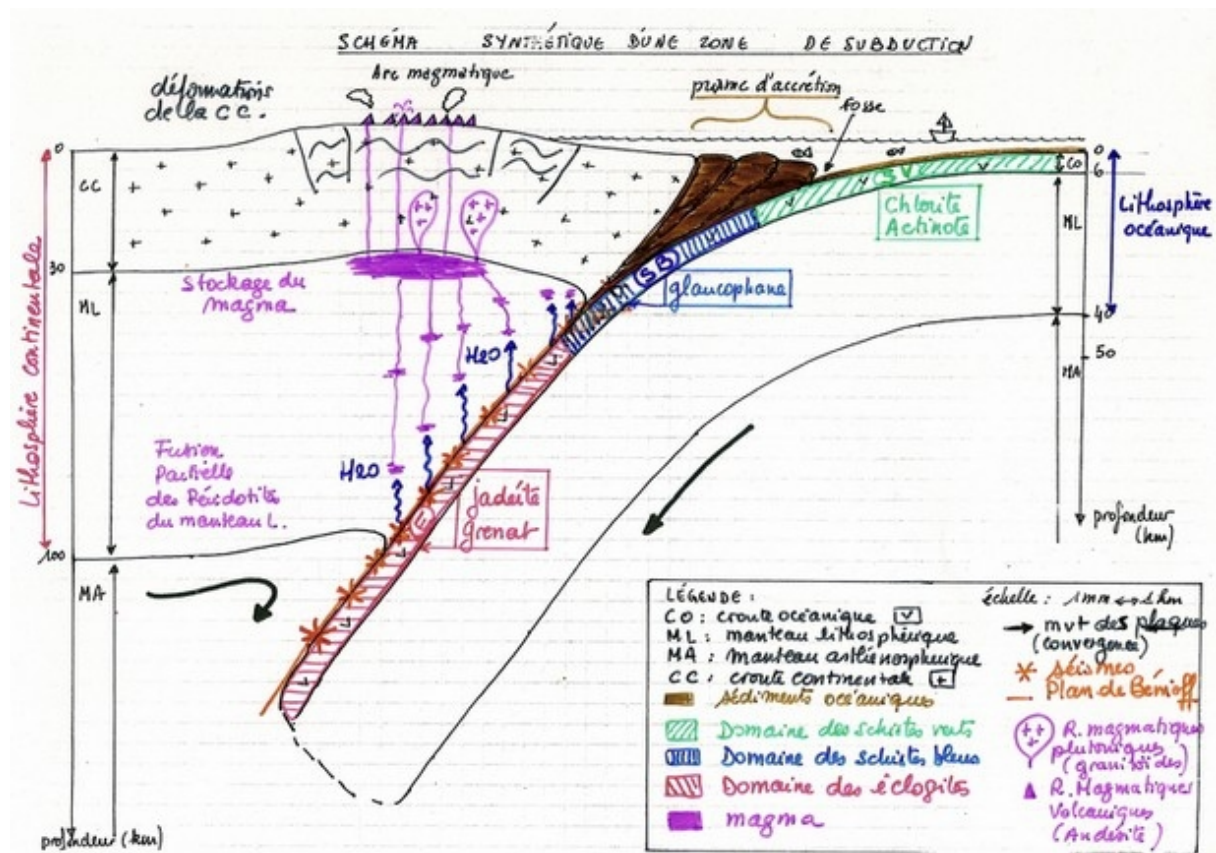 SCHÉMA SYNTHÉTIQUE D'UNE ZONE DE SUBDUCTION
Arc magmatique
déformations
de la CC.
prisme d'accrétion
fosse
0
CC
30
ML
Lithosphère continentale
100
MA
profondeur (km)
Stockage du
magma
Fusion
Partielle
des Péridotites
du manteau L.
H2O
H2O
(E)
jadéite
grenat
(SB)
glaucophane
(SV)
Chlorite
Actinote
0
CO
6
ML
Lithosphère
océanique
40
50
MA
profondeur
(km)
LÉGENDE :
CO : croute océanique v
ML : manteau lithosphérique
MA : manteau asthénosphérique
CC : croute continentale +
sédiments océaniques
Domaine des schistes verts
Domaine des schistes bleus
Domaine des éclogites
magma
échelle : 1mm ↔ 1km
→ mvt des plaques
(convergence)
séismes
Plan de Bénioff
R. magmatiques
plutoniques
(granitoïdes)
R. Magmatiques
Volcaniques
(Andésite)